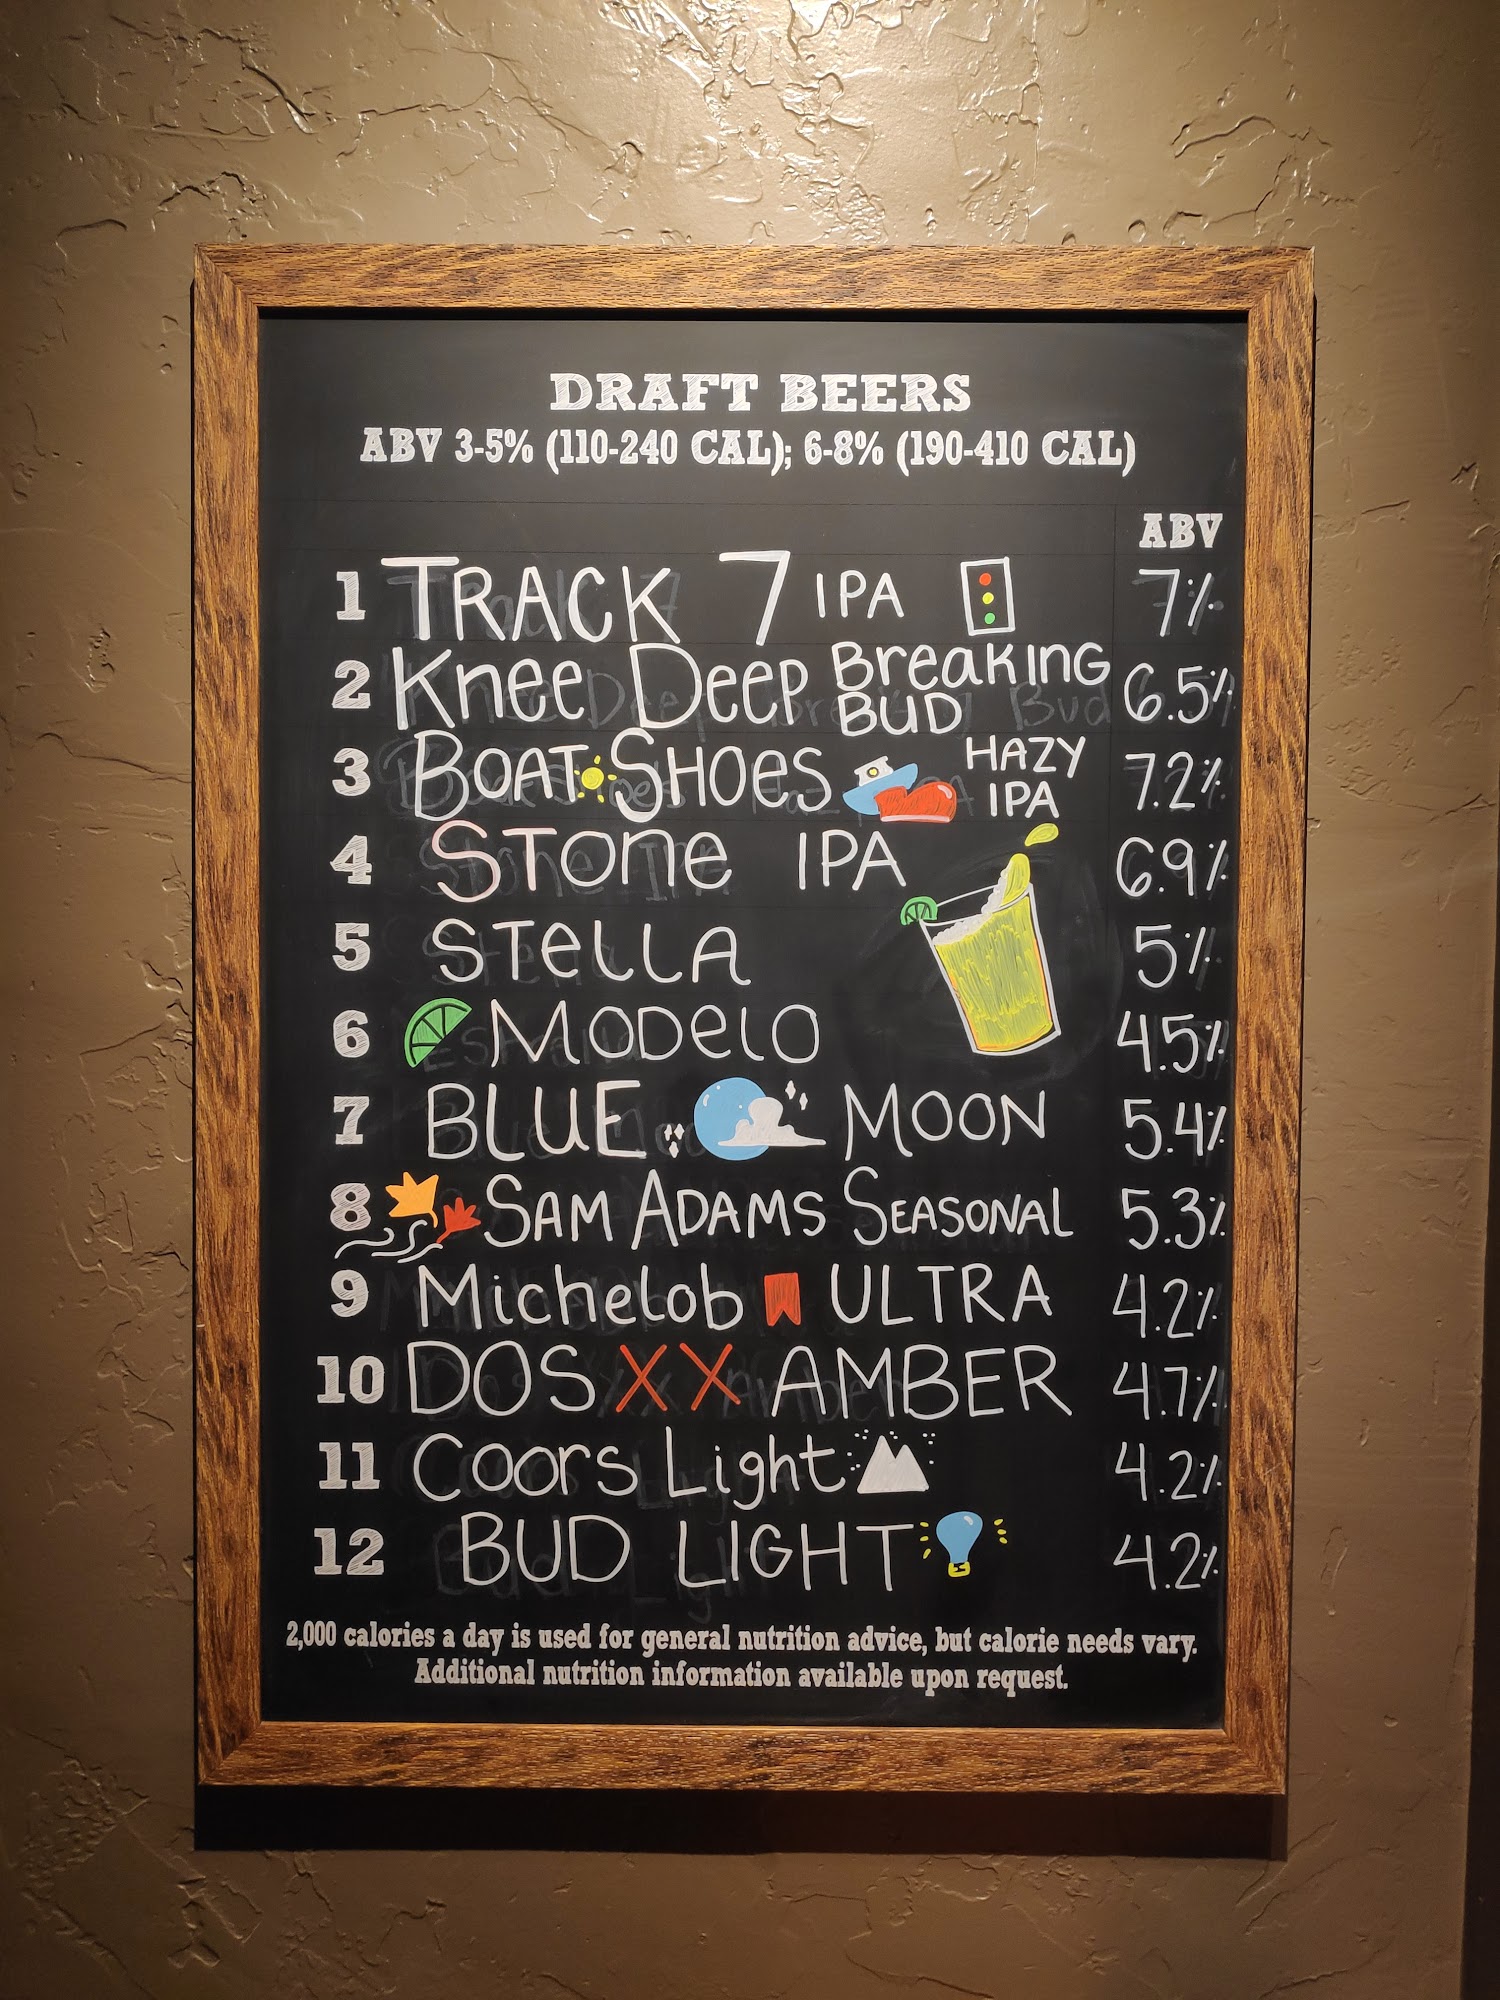 DRAFT BEERS
ABV 3-5% (110-240 CAL); 6-8% (190-410 CAL)
ABV
1 TRACK 7 IPA 7%
2 Knee Deep Breaking BUD 6.5%
3 BOAT SHOES HAZY IPA 7.2%
4 STONE IPA 6.9%
5 STELLA 5%
6 MODELO 4.5%
7 BLUE MOON 5.4%
8 SAM ADAMS SEASONAL 5.3%
9 Michelob ULTRA 4.2%
10 DOS XX AMBER 4.7%
11 Coors Light 4.2%
12 BUD LIGHT 4.2%
2,000 calories a day is used for general nutrition advice, but calorie needs vary.
Additional nutrition information available upon request.